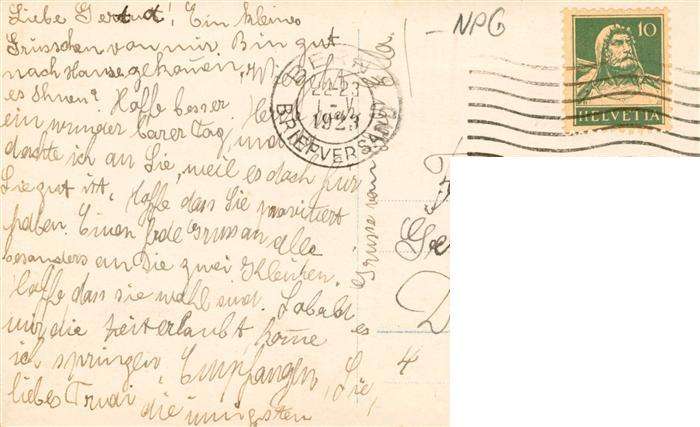 Liebe Gertrud! Ein kleines
Grüsschen von mir. Bin gut
nach Hause gekomen. Wie
es Ihnen? Hoffe besser
ein wunder barer Tag, und
dachte ich an Sie, weil es doch für
Sie gut ist. Hoffe dass Sie
haben. Einen Gruss an alle
besonders an die zwei Kleinen.
hoffe dass sie wohl sind. Sobald es
mir die Zeit erlaubt, kome
ich springen. Empfangen Sie,
liebes Trudi, die innigsten
Grüsse von
NPG
BERN
22-23
1-V
1923
BRIEFVERSAND
10
HELVETIA
4